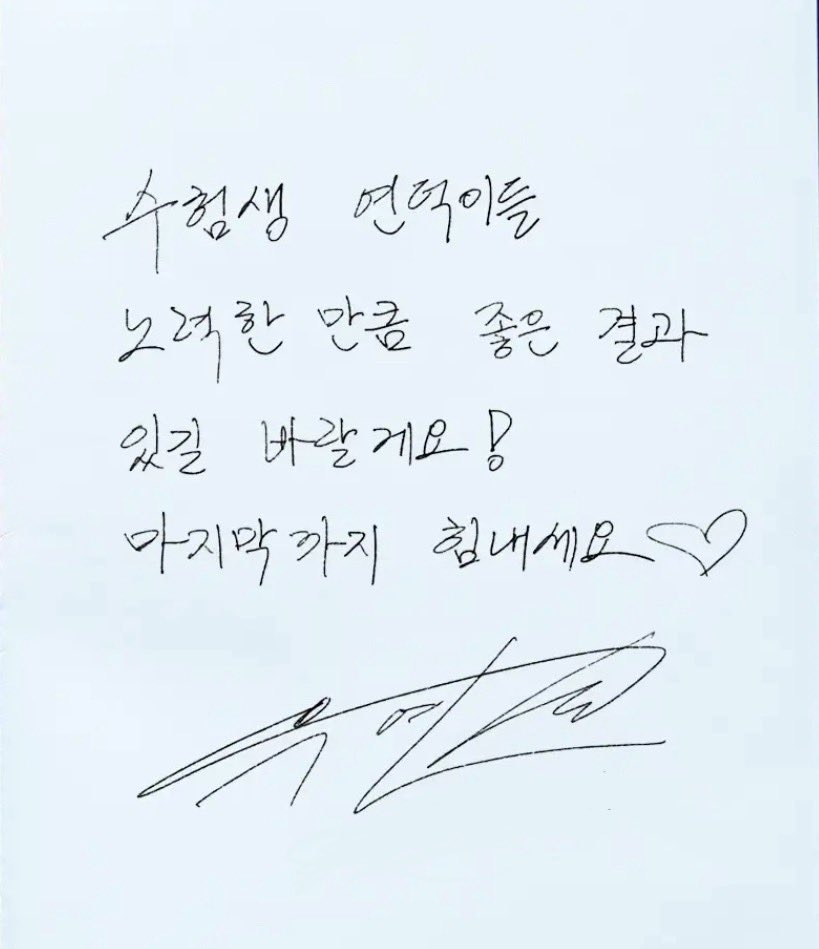 수험생 연덕이들
노력한 만큼 좋은 결과
있길 바랄게요!
마지막까지 힘내세요♡